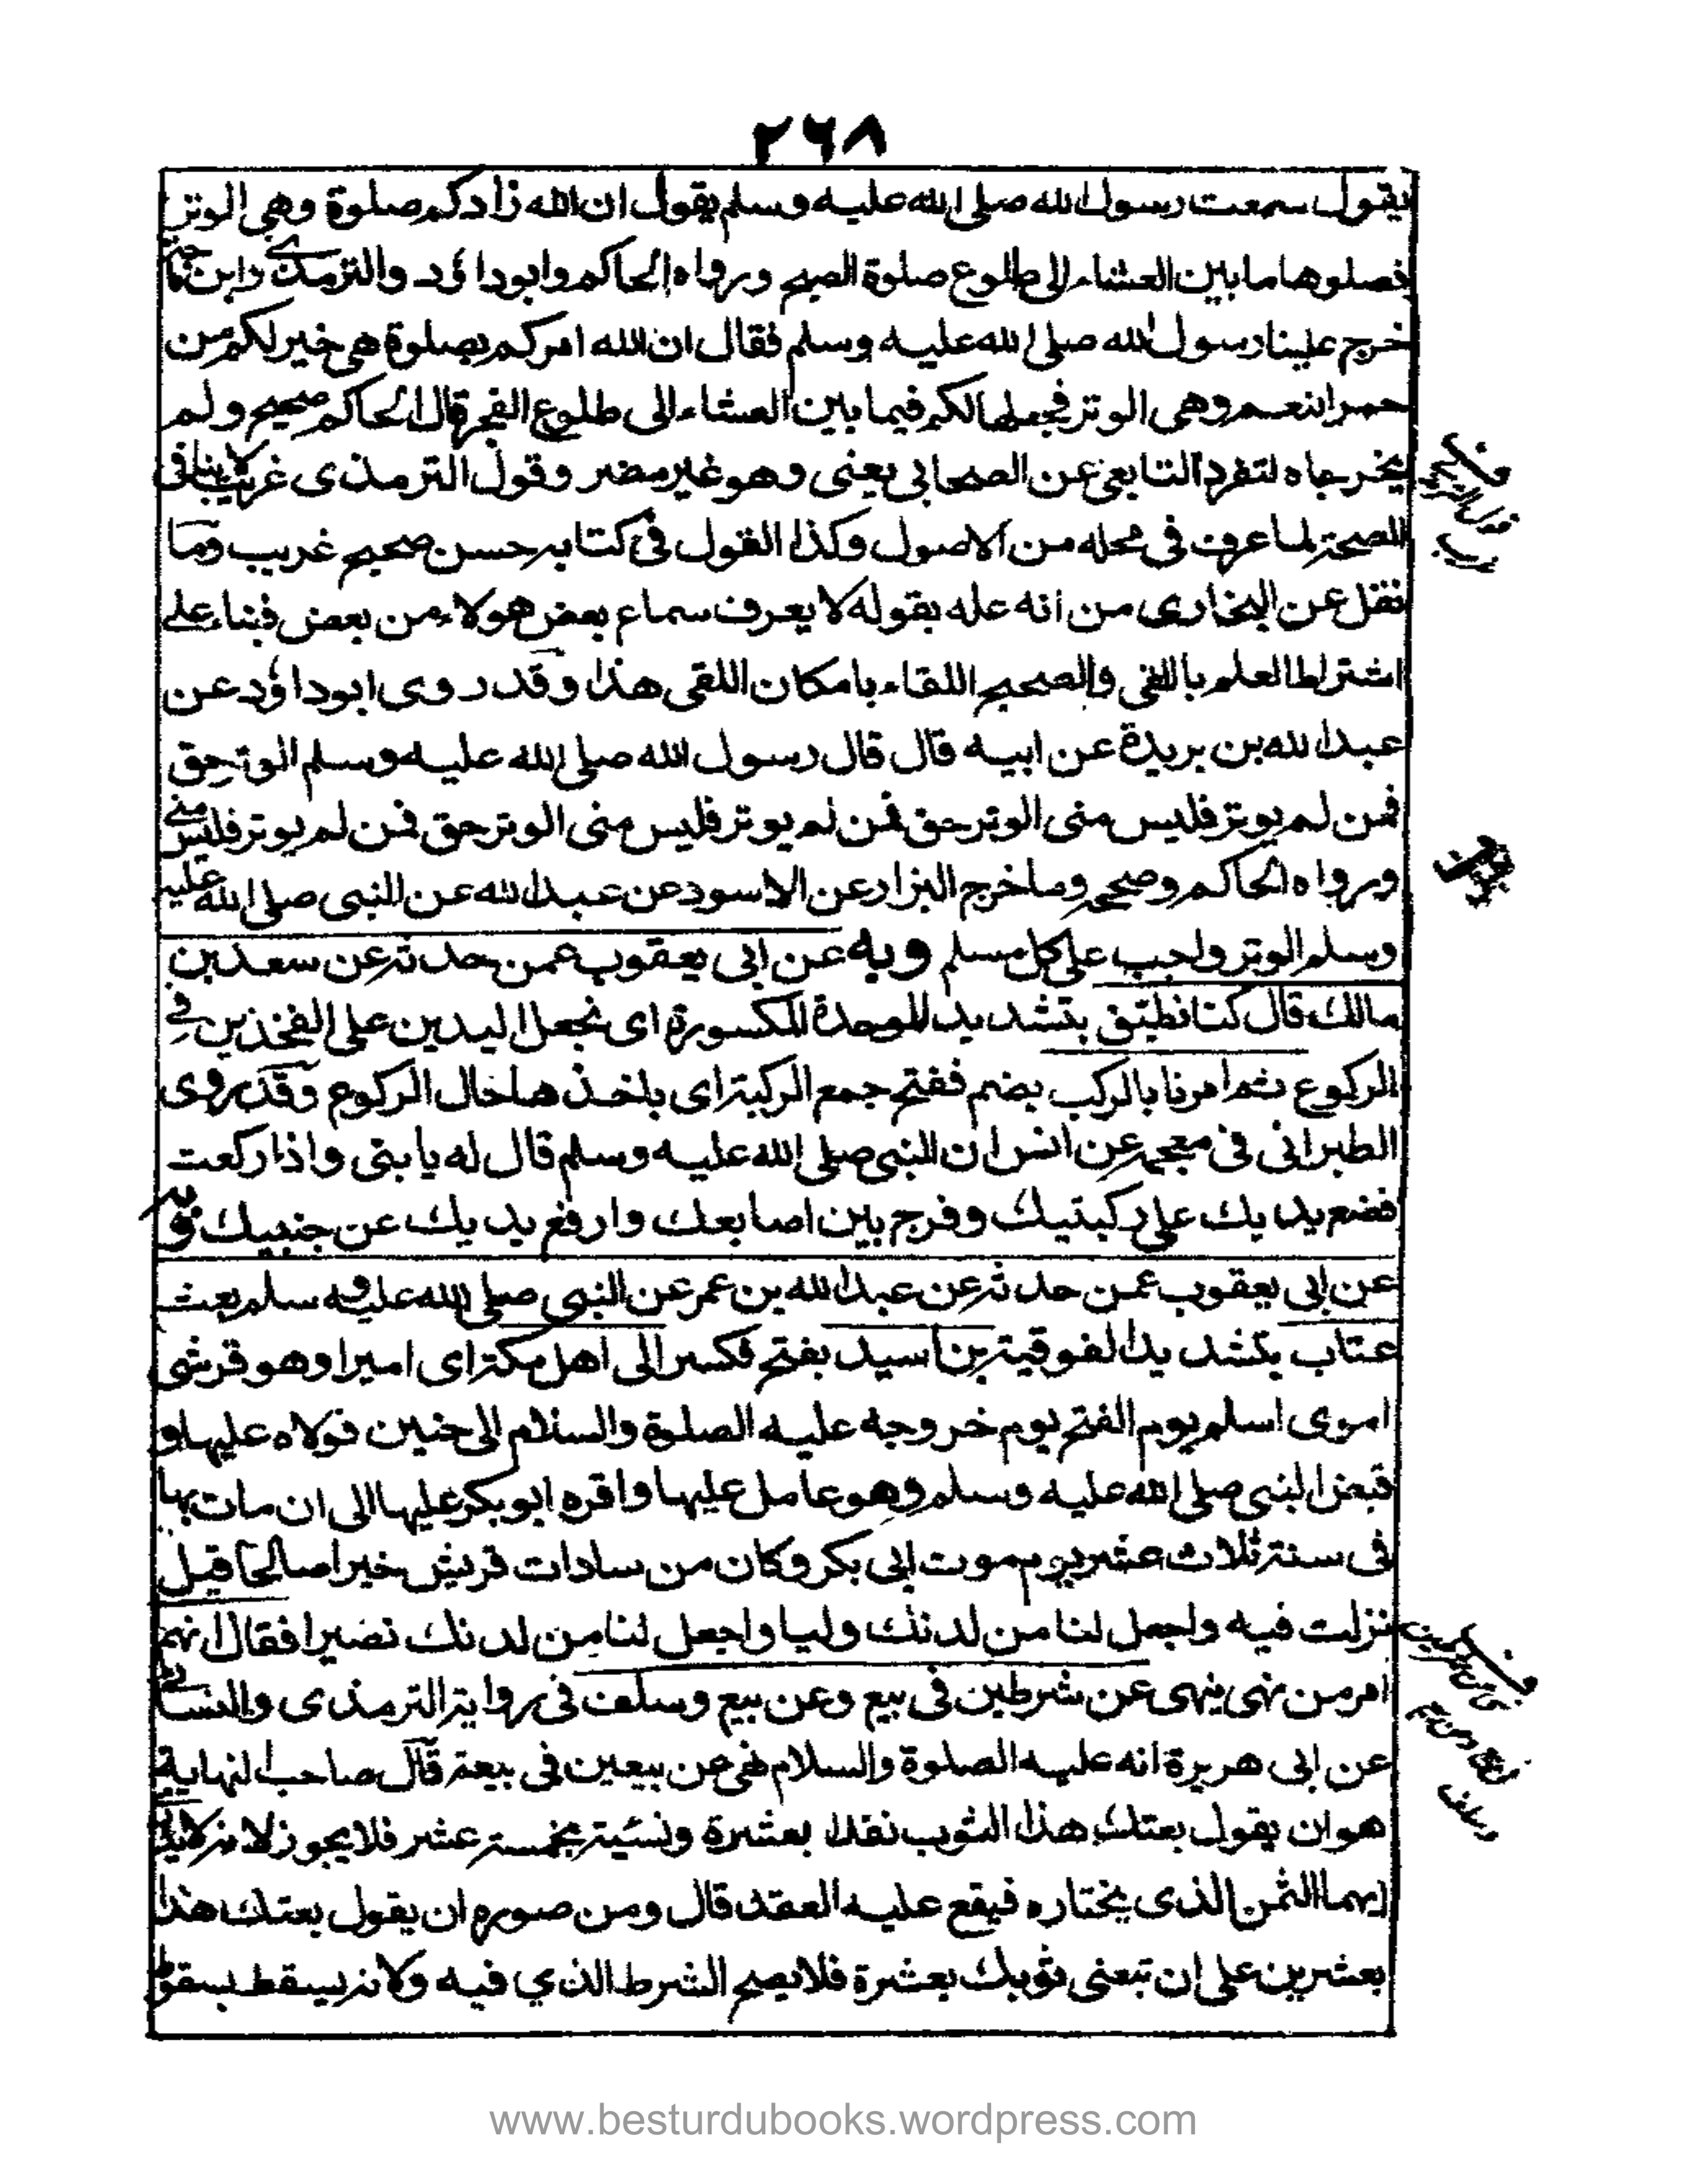 ٢٦٨
يقول سمعت رسول الله صلى الله عليه وسلم يقول ان الله زادكم صلوة وهي الوتر
فصلوها ما بين العشاء الى طلوع صلوة الصبح ورواه الحاكم وابوداؤد والترمذي وابن
خرج علينا رسول الله صلى الله عليه وسلم فقال ان الله امركم بصلوة هي خير لكم من
حمر النعم وهي الوتر فجعلها لكم فيما بين العشاء الى طلوع الفجر قال الحاكم صحيح ولم
يخرجاه لتفرد التابعي عن الصحابي يعني وهو غير مضر وقول الترمذى غريب لا ينافى
الصحة لما عرف في محله من الاصول وكذا القول في كتابه حسن صحيح غريب وما
نقل عن البخارى من انه عله بقوله لا يعرف سماع بعض هولاء من بعض فبناء على
اشتراط العلم باللقى والصحيح اللقاء بامكان اللقى هذا وقد روى ابوداؤد عن
عبد الله بن بريدة عن ابيه قال قال رسول الله صلى الله عليه وسلم الوتر حق
فمن لم يوتر فليس منى الوتر حق فمن لم يوتر فليس منى الوتر حق فمن لم يوتر فليس منى
ورواه الحاكم وصححه وما خرج البزار عن الاسود عن عبد الله عن النبى صلى الله عليه
وسلم الوتر واجب على كل مسلم وبه عن ابى يعقوب عمن حدثه عن سعد بن
مالك قال كنا نطبّق بتشديد الموحدة المكسورة اى نجعل اليدين على الفخذين في
الركوع ثم امرنا بالركب بضم ففتح جمع الركبة اى باخذها حال الركوع وقد روى
الطبرانى فى معجمه عن انس ان النبى صلى الله عليه وسلم قال له يا بنى واذا ركعت
فضع يديك على ركبتيك وفرج بين اصابعك وارفع يديك عن جنبيك وبه
عن ابى يعقوب عمن حدثه عن عبد الله بن عمر عن النبى صلى الله عليه وسلم بعث
عتاب بتشديد الفوقية بن اسيد بفتح فكسر الى اهل مكة اى اميرا وهو قرشى
اموى اسلم يوم الفتح يوم خروجه عليه الصلوة والسلام الى حنين فولاه عليها و
قبض النبى صلى الله عليه وسلم وهو عامل عليها واقره ابو بكر عليها الى ان مات بها
فى سنة ثلاث عشر يوم موت ابى بكر وكان من سادات قريش خيرا صالحا قيل
نزلت فيه واجعل لنا من لدنك وليا واجعل لنا من لدنك نصيرا فقال انهم
امر من نهى ينهى عن شرطين فى بيع وعن بيع وسلف فى رواية الترمذى والنسائى
عن ابى هريرة انه عليه الصلوة والسلام نهى عن بيعين فى بيعة قال صاحب النهاية
هو ان يقول بعتك هذا الثوب نقدا بعشرة ونسئية بخمسة عشر فلا يجوز لانه لا يدرى
ايهما الثمن الذى يختاره فيقع عليه العقد قال ومن صوره ان يقول بعتك هذا
بعشرين على ان تبعنى ثوبك بعشرة فلا يصح الشرط الذي فيه ولانه يسقط بسقوط
www.besturdubooks.wordpress.com